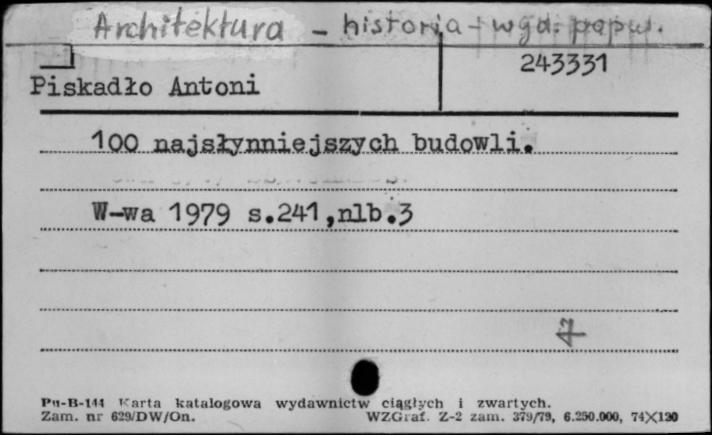 Architektura - historia - wyd. popul.
243331
Piskadło Antoni
100 najsłynniejszych budowli.
W-wa 1979 s.241,nlb.3
Pu-B-144 Karta katalogowa wydawnictw ciągłych i zwartych.
Zam. nr 629/DW/On. WZGraf. Z-2 zam. 379/79, 6.250.000, 74X120